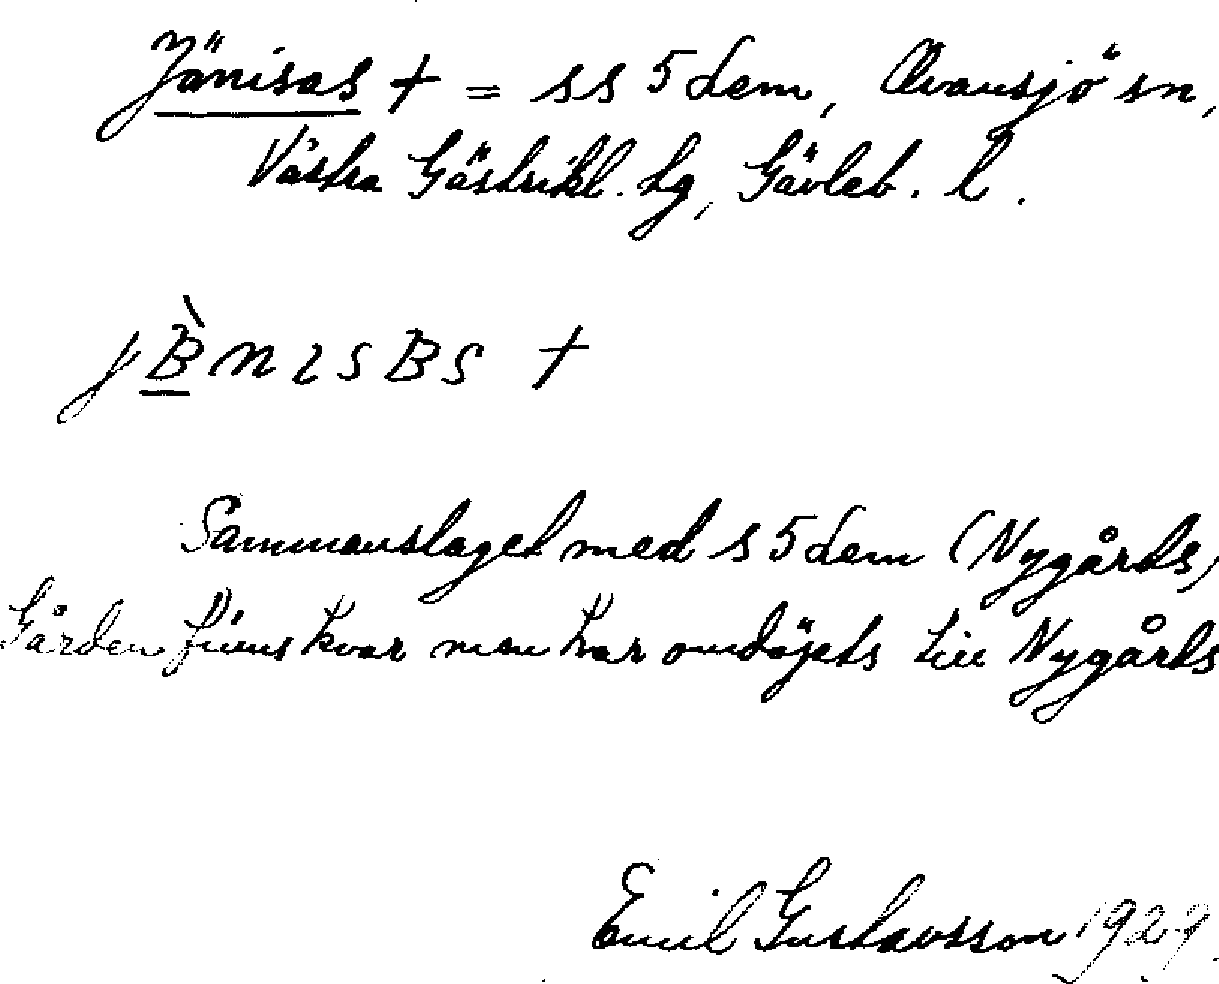 Jänisas † = ss 5 dem, Ovansjö sn,
Västra Gästrikl. hg, Gävleb. l.
j B̀ n ɩ s B s †
Sammanslaget med s 5 dem (Nygårds,
Gården finns kvar men har omdöjets till Nygårds
Emil Gustavsson 1929.